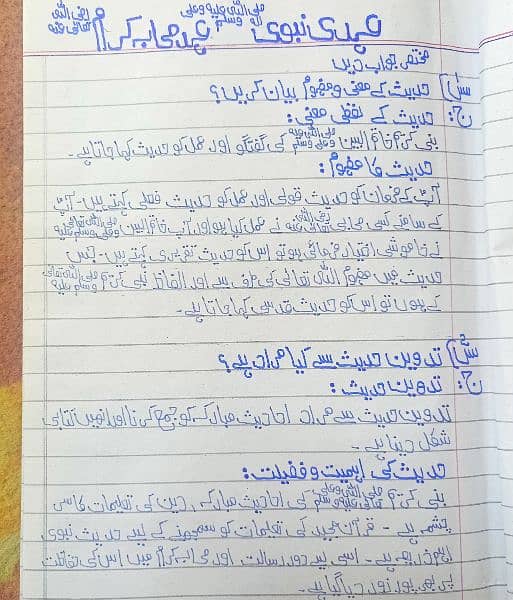 عہدی نبوی صلی اللہ علیہ وعلی آلہ وسلم عہد صحابہ کرام رضی اللہ تعالی عنہ
مختصر جواب دیں
س۱) حدیث کے معنی و مفہوم بیان کریں؟
ج: حدیث کے لفظی معنی:
نبی کریم خاتم النبین صلی اللہ علیہ وعلی وسلم کی گفتگو اور عمل کو حدیث کہا جاتا ہے۔
حدیث کا مفہوم:
آپ کے فرمان کو حدیث قولی اور عمل کو حدیث فعلی کہتے ہیں۔ آپ
کے سامنے کسی صحابی رضی اللہ تعالی عنہ نے عمل کیا ہو اور آپ خاتم النبین صلی اللہ تعالی علیہ وسلم
نے خاموشی اختیار فرمائی ہو تو اس کو حدیث تقریری کہتے ہیں۔ جس
حدیث میں مفہوم اللہ تعالی کی طرف سے اور الفاظ نبی کریم صلی اللہ تعالی علیہ وسلم
کے ہوں تو اس کو حدیث قدسی کہا جاتا ہے۔
س۲) تدوین حدیث سے کیا مراد ہے؟
ج: تدوین حدیث:
تدوین حدیث سے مراد احادیث مبارکہ کو جمع کرنا اور انھیں کتابی
شکل دینا ہے۔
حدیث کی اہمیت و فضیلت:
نبی کریم صلی اللہ علیہ وعلی وسلم کی احادیث مبارکہ، دین کی تعلیمات کا سر
چشمہ ہے۔ قرآن مجید کی تعلیمات کو سمجھنے کے لیے حدیث نبوی
اہم ذریعہ ہے۔ اسی لیے دور رسالت اور صحابہ کرام میں اس کی حفاظت
پر بھر پور زور دیا گیا ہے۔